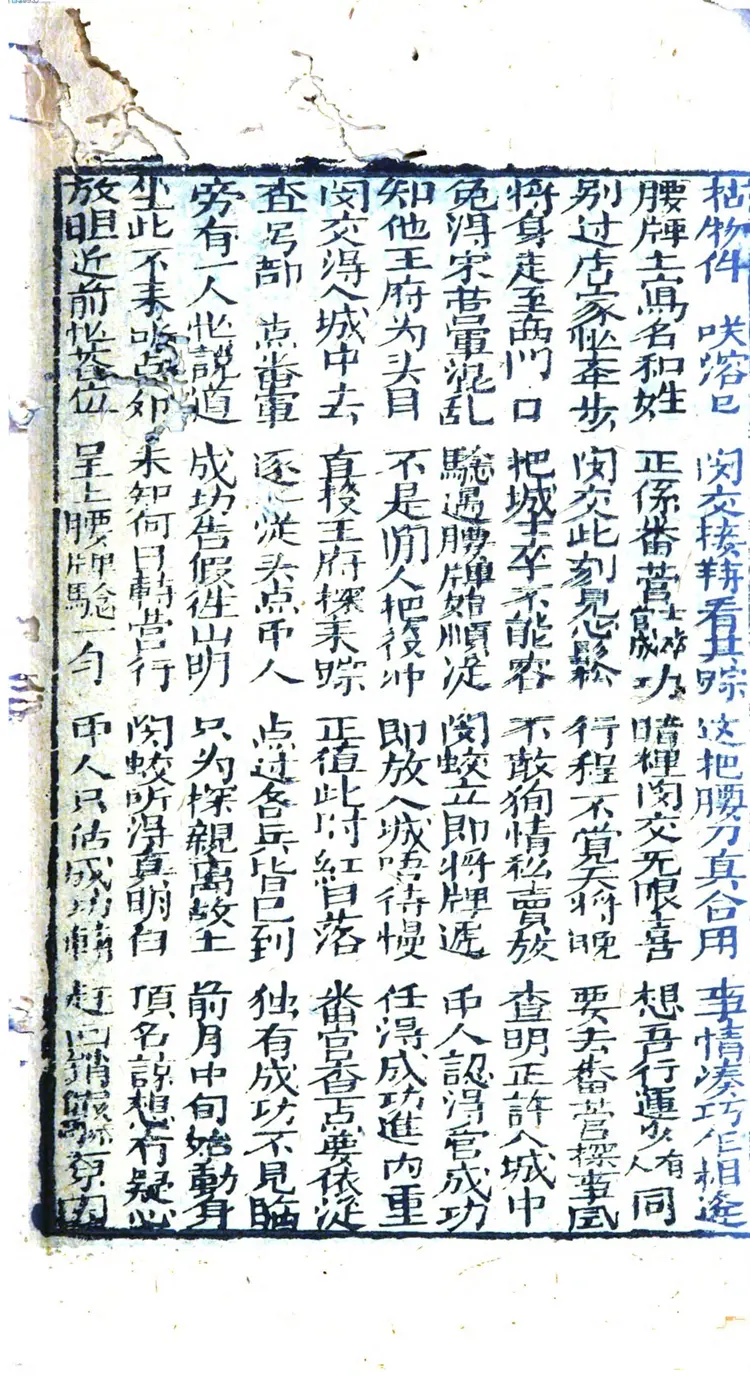 拈物件 咲溶已 閔交接轉看其踪 这把腰刀真合用 事情凑巧乍相逢
腰牌上寫名和姓 正係番营官成功 暗裡閔交无限喜 想吾行運少有人同
别过店家忙奔步 閔交此刻見心鬆 行程不覚天将晚 要去番营探事風
将身走至西门口 把城士卒不能容 不敢狥情私賣放 查明正許入城中
免得宋营軍混乱 驗過腰牌始順從 閔蛟立即将牌遞 帀人認得官成功
知他王府为头目 不是閒人把役冲 即放入城唔待慢 任得成功進内重
閔交得入城中去 直投王府探耒踪 正值此时紅日落 番官查点要依從
查写部 点番軍 逐一從头点帀人 点过各兵皆已到 独有成功不見
旁有一人忙説道 成功告假徃山明 只为探親离故土 前月中旬始動身
至此不耒听点卯 未知何日轉营行 閔蛟听得真明白 頂名諒想冇疑心
放胆近前忙答位 呈上腰牌驗一匀 帀人只估成功轉 赶回銷假禀内